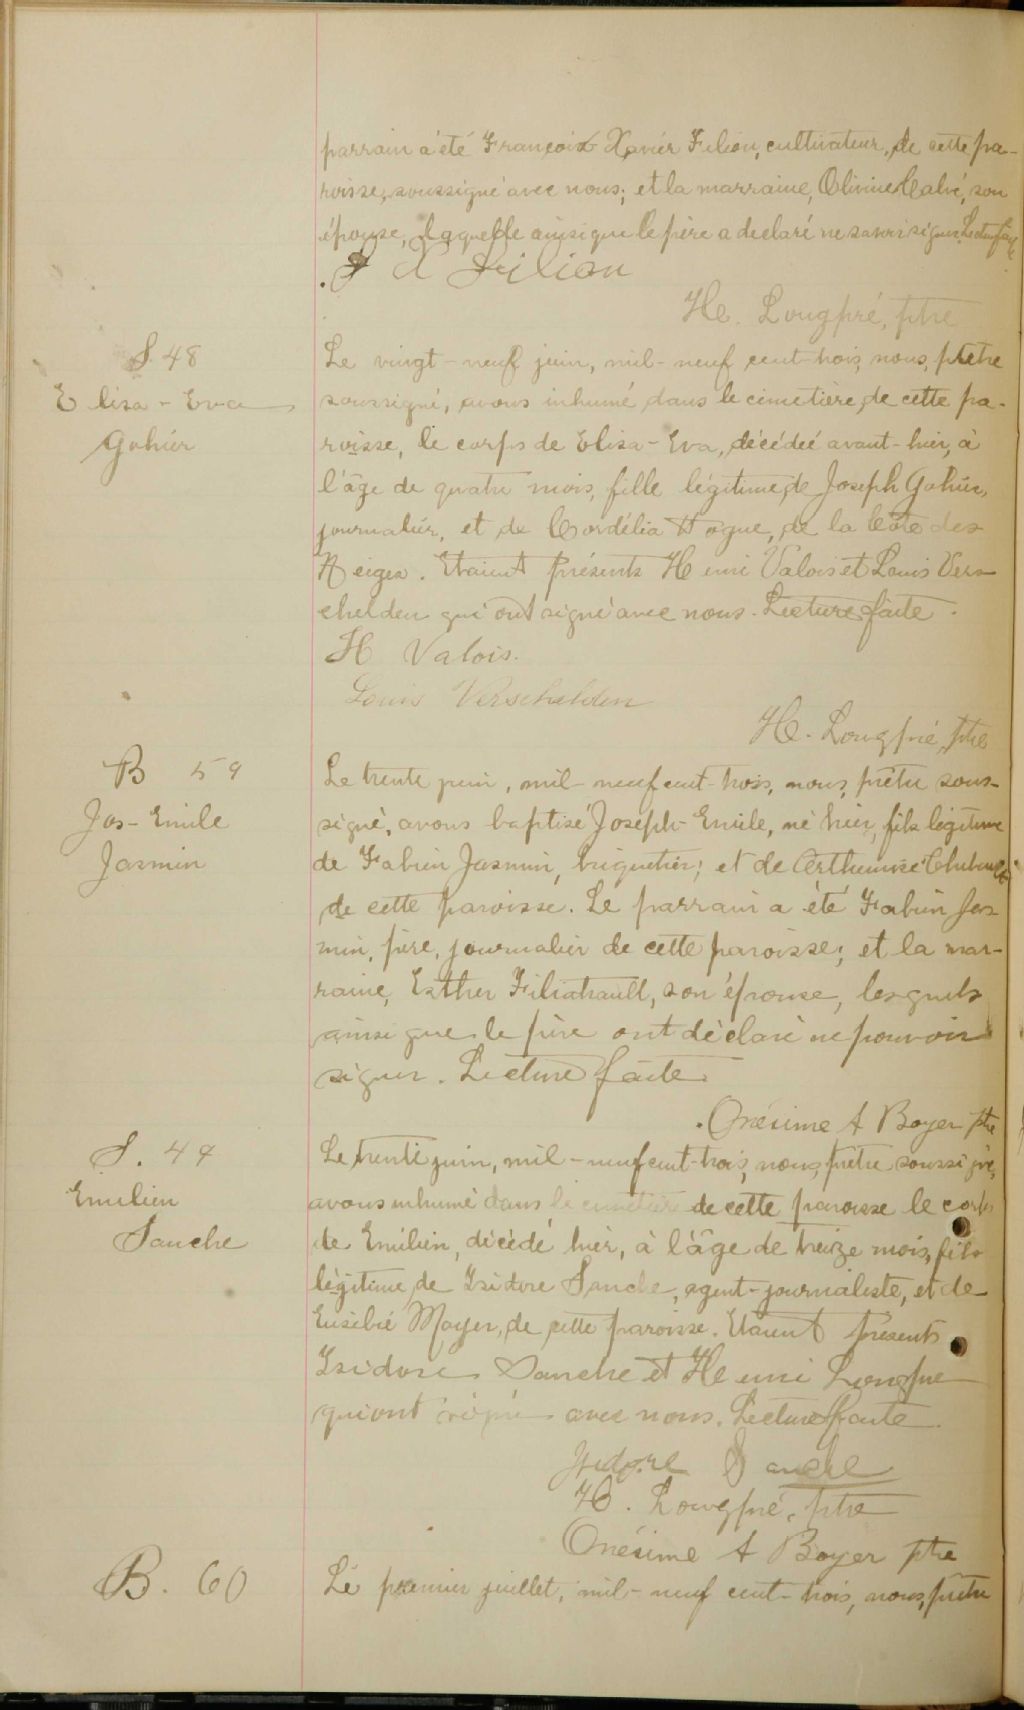 parrain a été François Xavier Filion, cultivateur, de cette pa-
roisse, soussigné avec nous; et la marraine, Olivine Calvé, son
épouse, laquelle ainsi que le père a déclaré ne savoir signer. Lecture faite
F X Filion
He. Longpré, ptre
S. 48
Elisa - Eva
Gohier
Le vingt-neuf juin, mil-neuf cent-trois, nous, prêtre
soussigné, avons inhumé dans le cimetière de cette pa-
roisse, le corps de Elisa-Eva, décédée avant-hier, à
l'âge de quatre mois, fille légitime de Joseph Gohier,
journalier, et de Cordélia Hogue, de la Côte des
Neiges. Etaient présents Henri Valois et Louis Vers
chelden qui ont signé avec nous. Lecture faite.
H Valois.
Louis Verschelden
He. Longpré, ptre
B 59
Jos-Emile
Jasmin
Le trente juin, mil neuf cent-trois, nous, prêtre sous-
signé, avons baptisé Joseph-Emile, né hier, fils légitime
de Fabien Jasmin, briquetier; et de
de cette paroisse. Le parrain a été Fabien Jas
min, père, journalier de cette paroisse; et la mar-
raine, Esther Filiatrault, son épouse, lesquels
ainsi que le père ont déclaré ne pouvoir
signer. Lecture faite.
Onésime A Boyer ptre
S. 49
Emilien
Sanche
Le trente juin, mil-neuf cent-trois, nous, prêtre soussigné,
avons inhumé dans le cimetière de cette paroisse le corps
de Emilien, décédé hier, à l'âge de treize mois, fils
légitime de Isidore Sanche, agent-journaliste, et de
Eusébie Mayer, de cette paroisse. Etaient présents
Isidore Sanche et Henri Longpré
qui ont signé avec nous. Lecture faite.
Isidore Sanche
H. Longpré, ptre
Onésime A Boyer ptre
B. 60
Le premier juillet, mil-neuf cent-trois, nous, prêtre